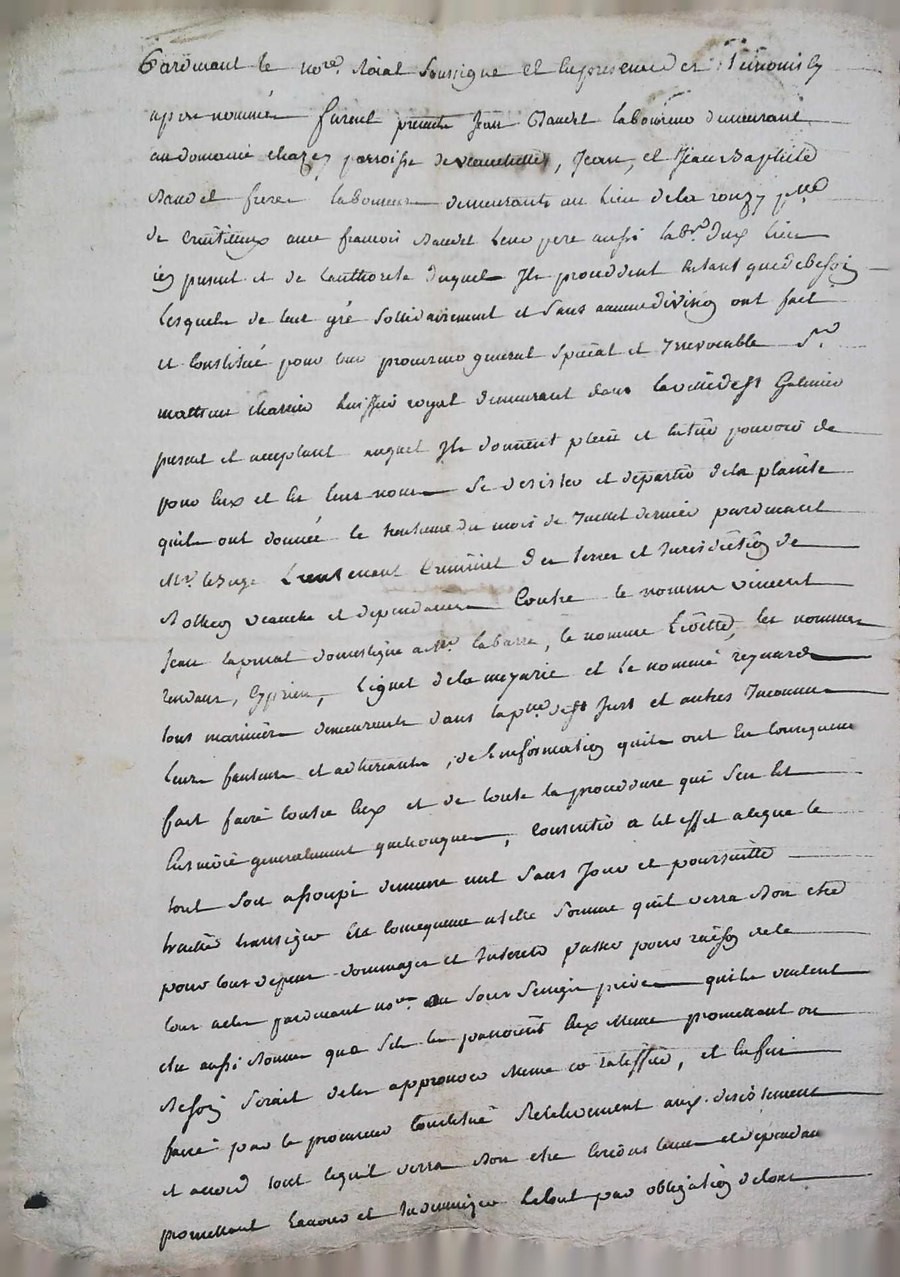 Pardevant le no.re Roial Soussigne et En presence des Temoins Cy
apres nommés furent presents Jean Baudet laboureur demeurant
au domaine chazes parroisse de veauchette, Jean, et Jean Baptiste
Baudet freres laboureurs demeurants au lieu de la ronzy p.sse
de Craintilleux avec francois Baudet leur pere aussi lab.r dud. lieu
icy present et de lauthorité duquel Ils proceddent entant que de besoin
lesquels de leur gré sollidairement et sans aucune division ont fait
et constitué pour leur procureur general special et Irrevocable S.r
mathieu charrier huissier royal demeurant dans la ville de st Galmier
present et acceptant auquel Ils donnent plein et entier pouvoir de
pour Eux et En leurs noms Se desister et departir de la plainte
quils ont donnée le trentieme du mois de Juillet dernier pardevant
M.r le Juge Lieutenant Criminel des terres et Jurisdiction de
veauche et dependances Contre le nommé vincent
Jean domestique a M.r labarre, le nommé, les nommés
Cyprien, Liquet de la meyarie et le nommé reynard
tous mariniers demeurants dans la p.sse de st Just et autres Inconnus
leurs fauteurs et adherants, de l'information quils ont En consequence
fait faire contre Eux et de toute la procedure qui s'en est
Ensuivie generalement quelconques, Consentir a cet effet a ce que le
tout soit assoupi demeure nul sans Jour et poursuitte
traiter transiger En consequence a telle somme quil verra Bon etre
pour tous depens dommages et Interets passer pour raison de ce
tous actes pardevant no.re ou sous Seings privés quils veulent
etre aussi Bonne que si Ils les passoient Eux meme promettant ou
Besoin serait de les approuver meme ratiffier, et Enfin
faire par le procureur Constitué Relativement aux desistement
et accord tout ce quil verra Bon etre et dependances
promettant l'avouer et Indemniser Le tout par obligation de tous